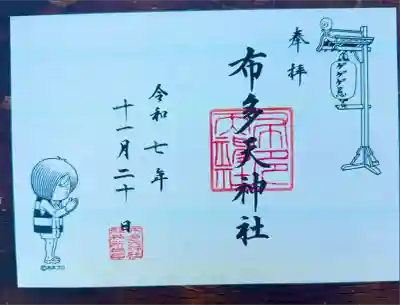 奉拝
布多天神社
令和七年
十一月二十日
ゲゲゲ忌